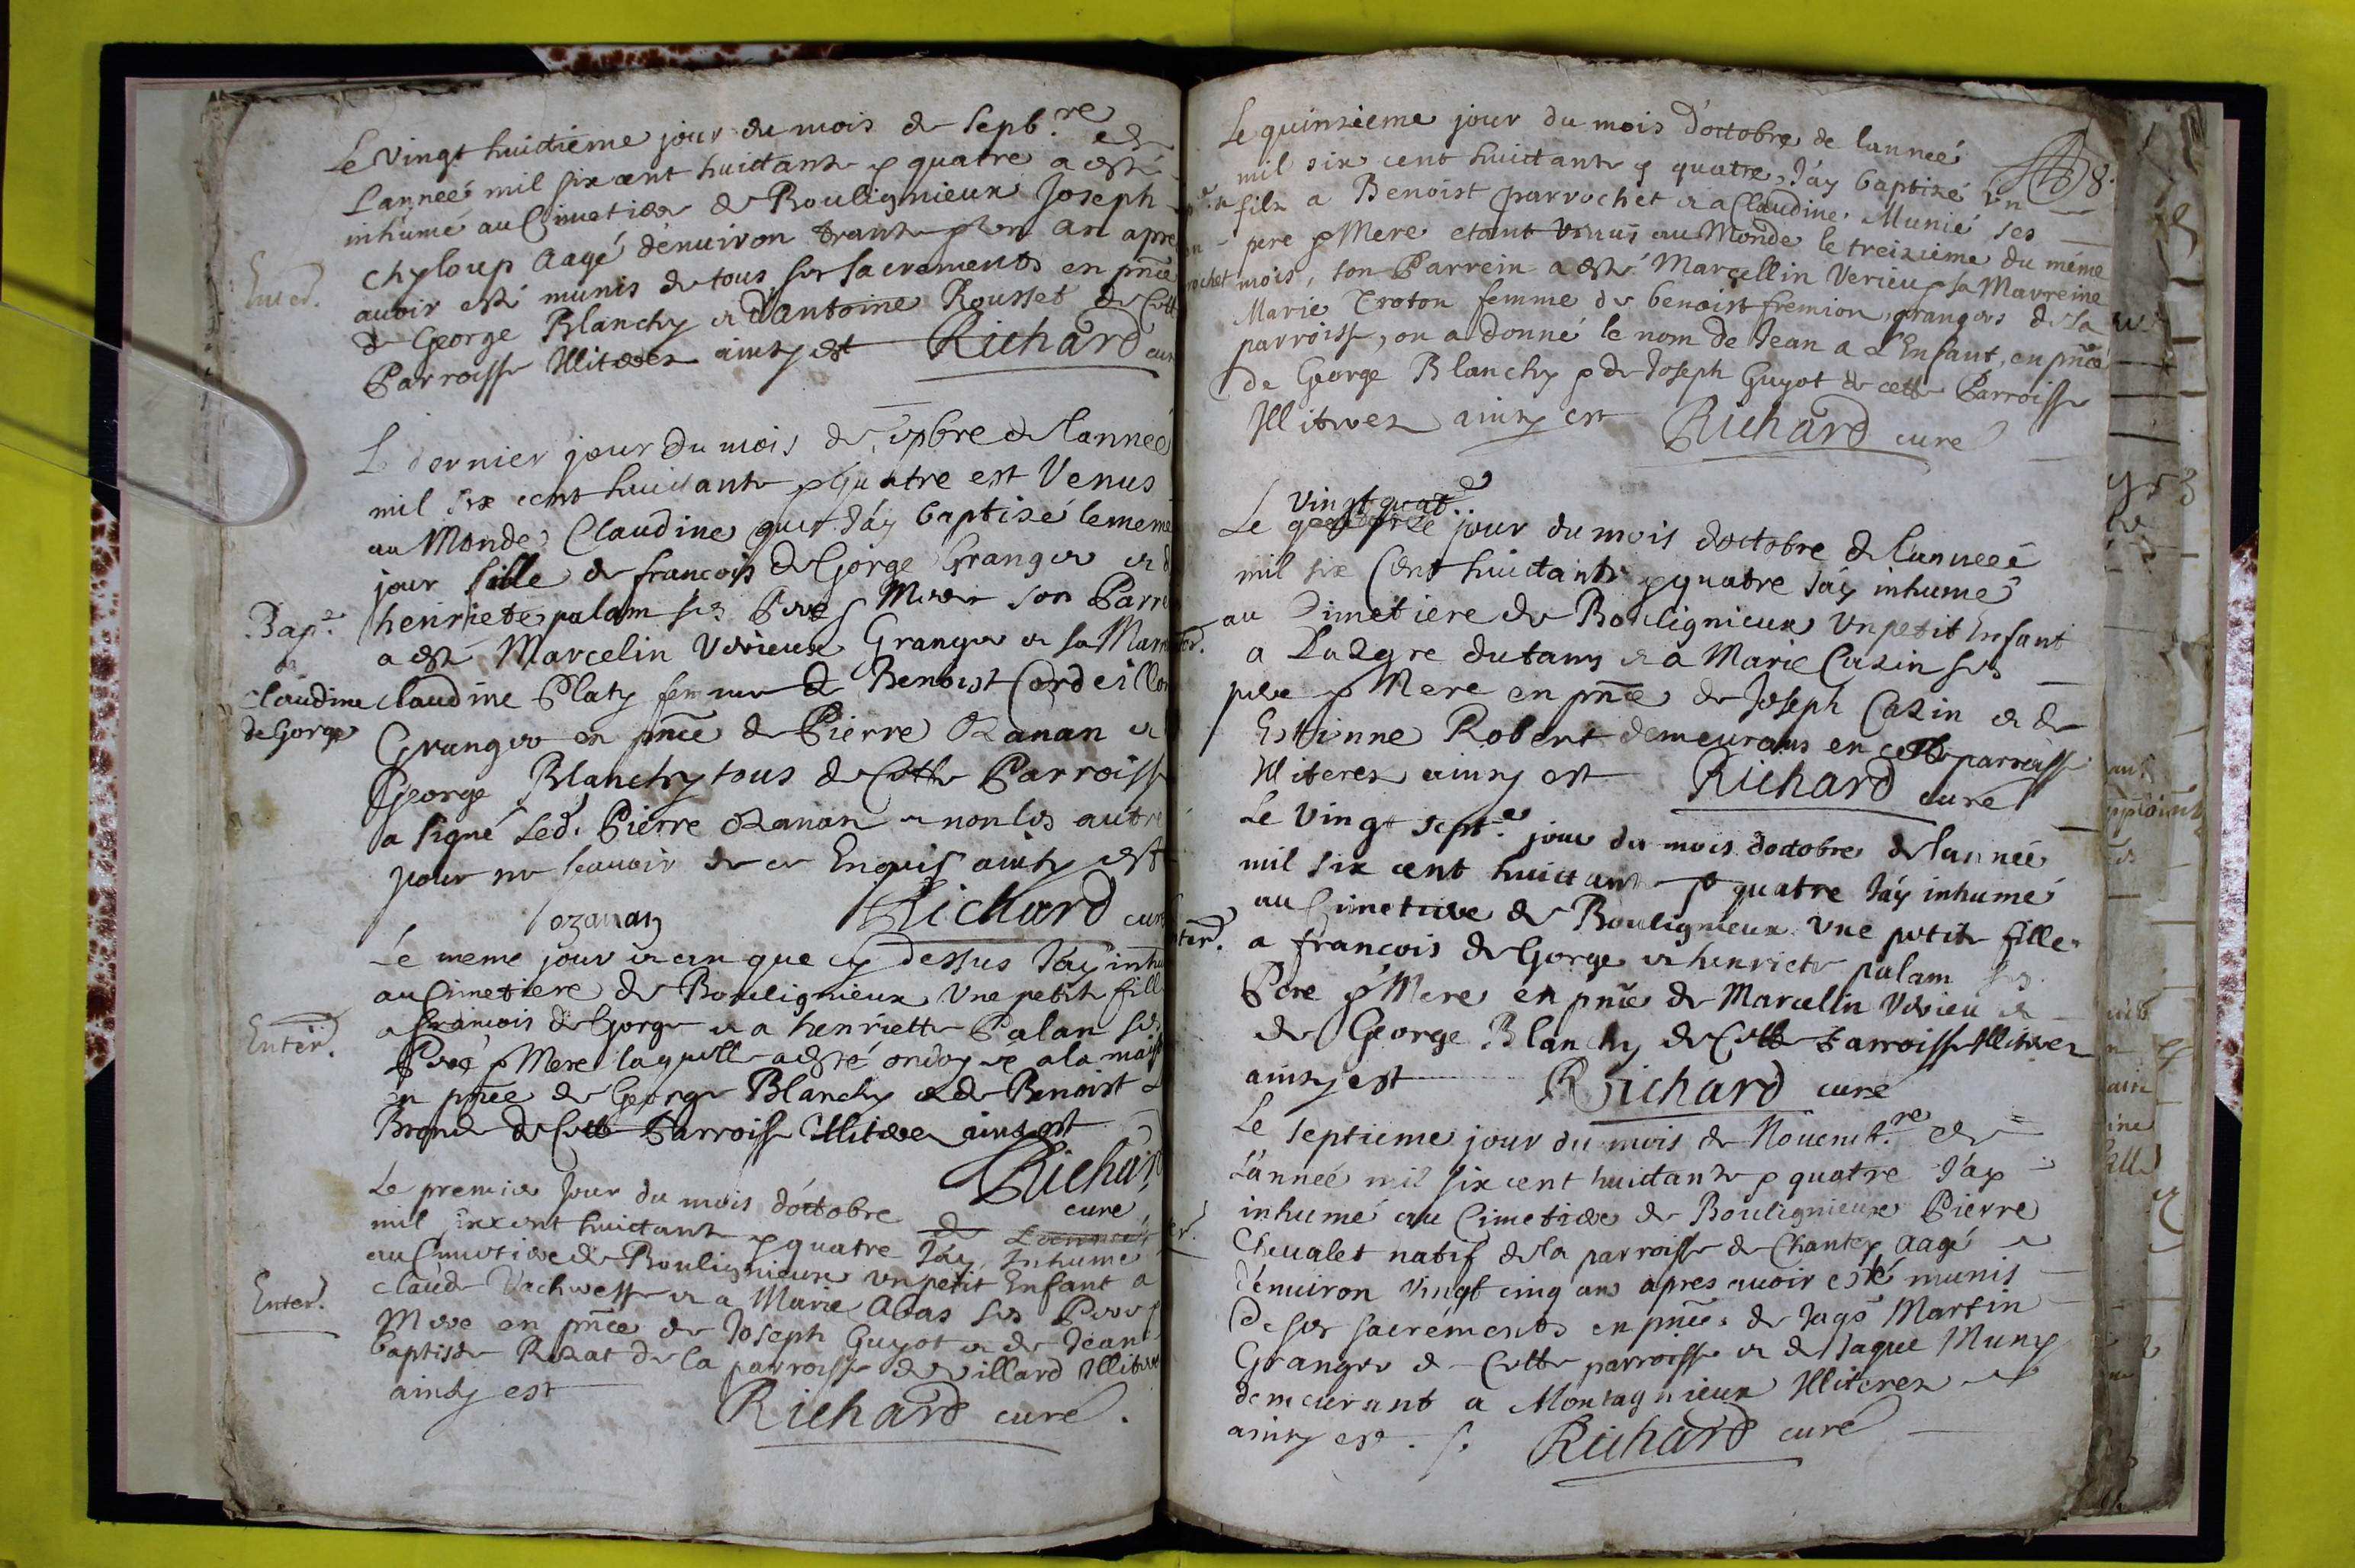 Le vingt huictieme jour du mois de sepb.re de
Lanneé mil six cent huictante & quatre a esté
inhumé au Cimetiere de Bouligneux Joseph
chyloup aagé denuiron trante & un an apre
Enter.
auoir esté munis de tous ses sacrements en pnce
de George Blanchy et d'Antoine Rousset de Cette
Parroisse Illiteres ainsy est Richard cure
Le dernier jour du mois de 7pbre de lanneé
mil six cent huictante & quatre est Venus
au Monde Claudine que J'ay baptisé le meme
jour fille de francois de Gorge Granger et d
Bap.e
de
Claudine
de Gorge
henriete palam ses Pere & Mere son Parre
a esté Marcelin Verieux Granger et sa Marr
claudine Platy femme de Benoist Cordeillon
Granger en pnce de Pierre Ozanan et
George Blanchy tous de Cette Parroisse
a signé led. Pierre Ozanan et non les autre
pour ne scauoir de ce Enquis ainsy est
ozanan Richard cure
Le meme jour et an que cy dessus J'ay inhu
au Cimetiere de Bouligneux Une petite fille
Enter.
a francois de Gorge et a henriette Palan ses
Pere & Mere laquelle a esté ondoyee a la mais
en pnce de George Blanchy et de Benoist
Brond de Cette Parroisse Illiteres ainsy est
Richard
cure
Le premier Jour du mois d'octobre de Lanneé
mil six cent huictante & quatre J'ay Inhumé
au Cimetiere de Bouligneux un petit Enfant a
Enter.
claude Vacheresse et a Marie Abas ses Pere &
Mere en pnce de Joseph Guyot et de Jean
baptiste Rozat de la parroisse de villard Illiteres
ainsy est Richard curé.
Le quinzieme jour du mois d'octobre de lanneé
8.
mil six cent huictante & quatre, J'ay baptizé un
fils a Benoist parrochet et a Claudine Munié ses
pere & Mere etant venus au Monde le treizieme du méme
mois, son Parrein a esté Marcellin Verieu & sa Marreine
Marie Troton femme de benoist fremion, grangers de la
parroisse, on a donné le nom de Jean a L'Enfant, en pnce
de George Blanchy & de Joseph Guyot de cette Parroisse
Illiteres ainsy est Richard curé
vingt quat.e
Le jour du mois d'octobre de lanneé
mil six Cent huictante & quatre J'ay inhumé
au Cimetiere de Bouligneux un petit Enfant
a Lazare dutamy et a Marie Cazin ses
pere & Mere en pnce de Joseph Cazin et de
Estienne Robert demeurans en cette parroisse
Illiteres ainsy est Richard curé
Le vingt sept.e jour du mois doctobre de lanneé
mil six cent huictante & quatre J'ay inhumé
au Cimetiere de Bouligneux une petite fille
a francois de Gorge et henriete palam ses
Pere & Mere en pnce de Marcellin Verieu et
de George Blanchy de Cette Parroisse Illiteres
ainsy est Richard curé
Le septieme jour du mois de Nouemb.re de
L'anneé mil six cent huictante & quatre J'ay
inhumé au Cimetiere de Bouligneux Pierre
Cheualet natif de la parroisse de Chantey aagé
d'enuiron vingt cinq ans apres auoir esté munis
De ses sacréments en pnce de Jaqs Martin
Granger de Cette parroisse et de Jaque Muny
demeurant a Montagnieux Illiteres
ainsy est. Richard curé